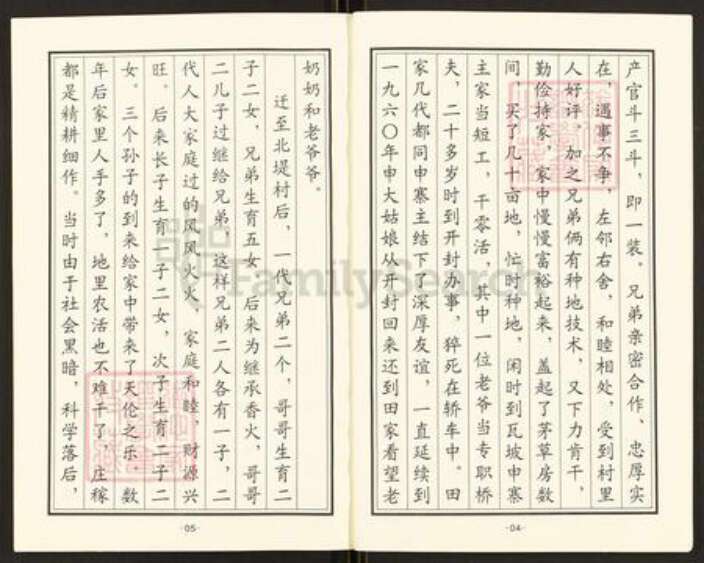 产官斗三斗，即一装。兄弟亲密合作、忠厚实
在，遇事不争，左邻右舍，和睦相处，受到村里
人好评。加之兄弟俩有种地技术，又下力肯干，
勤俭持家，家中慢慢富裕起来，盖起了茅草房数
间，买了几十亩地，忙时种地，闲时到瓦坡申寨
主家当短工，干零活，其中一位老爷当专职桥
夫，二十多岁时到开封办事，猝死在轿车中。田
家几代都同申寨主结下了深厚友谊，一直延续到
一九六〇年申大姑娘从开封回来还到田家看望老
-04-
奶奶和老爷爷。
迁至北堤村后，一代兄弟二个，哥哥生育二
子二女，兄弟生育五女，后来为继承香火，哥哥
二儿子过继给兄弟，这样兄弟二人各有一子，二
代人大家庭过的风风火火，家庭和睦，财源兴
旺。后来长子生育一子二女，次子生育二子二
女。三个孙子的到来给家中带来了天伦之乐。数
年后家里人手多了，地里农活也不难干了，庄稼
都是精耕细作。当时由于社会黑暗，科学落后，
-05-
FamilySearch